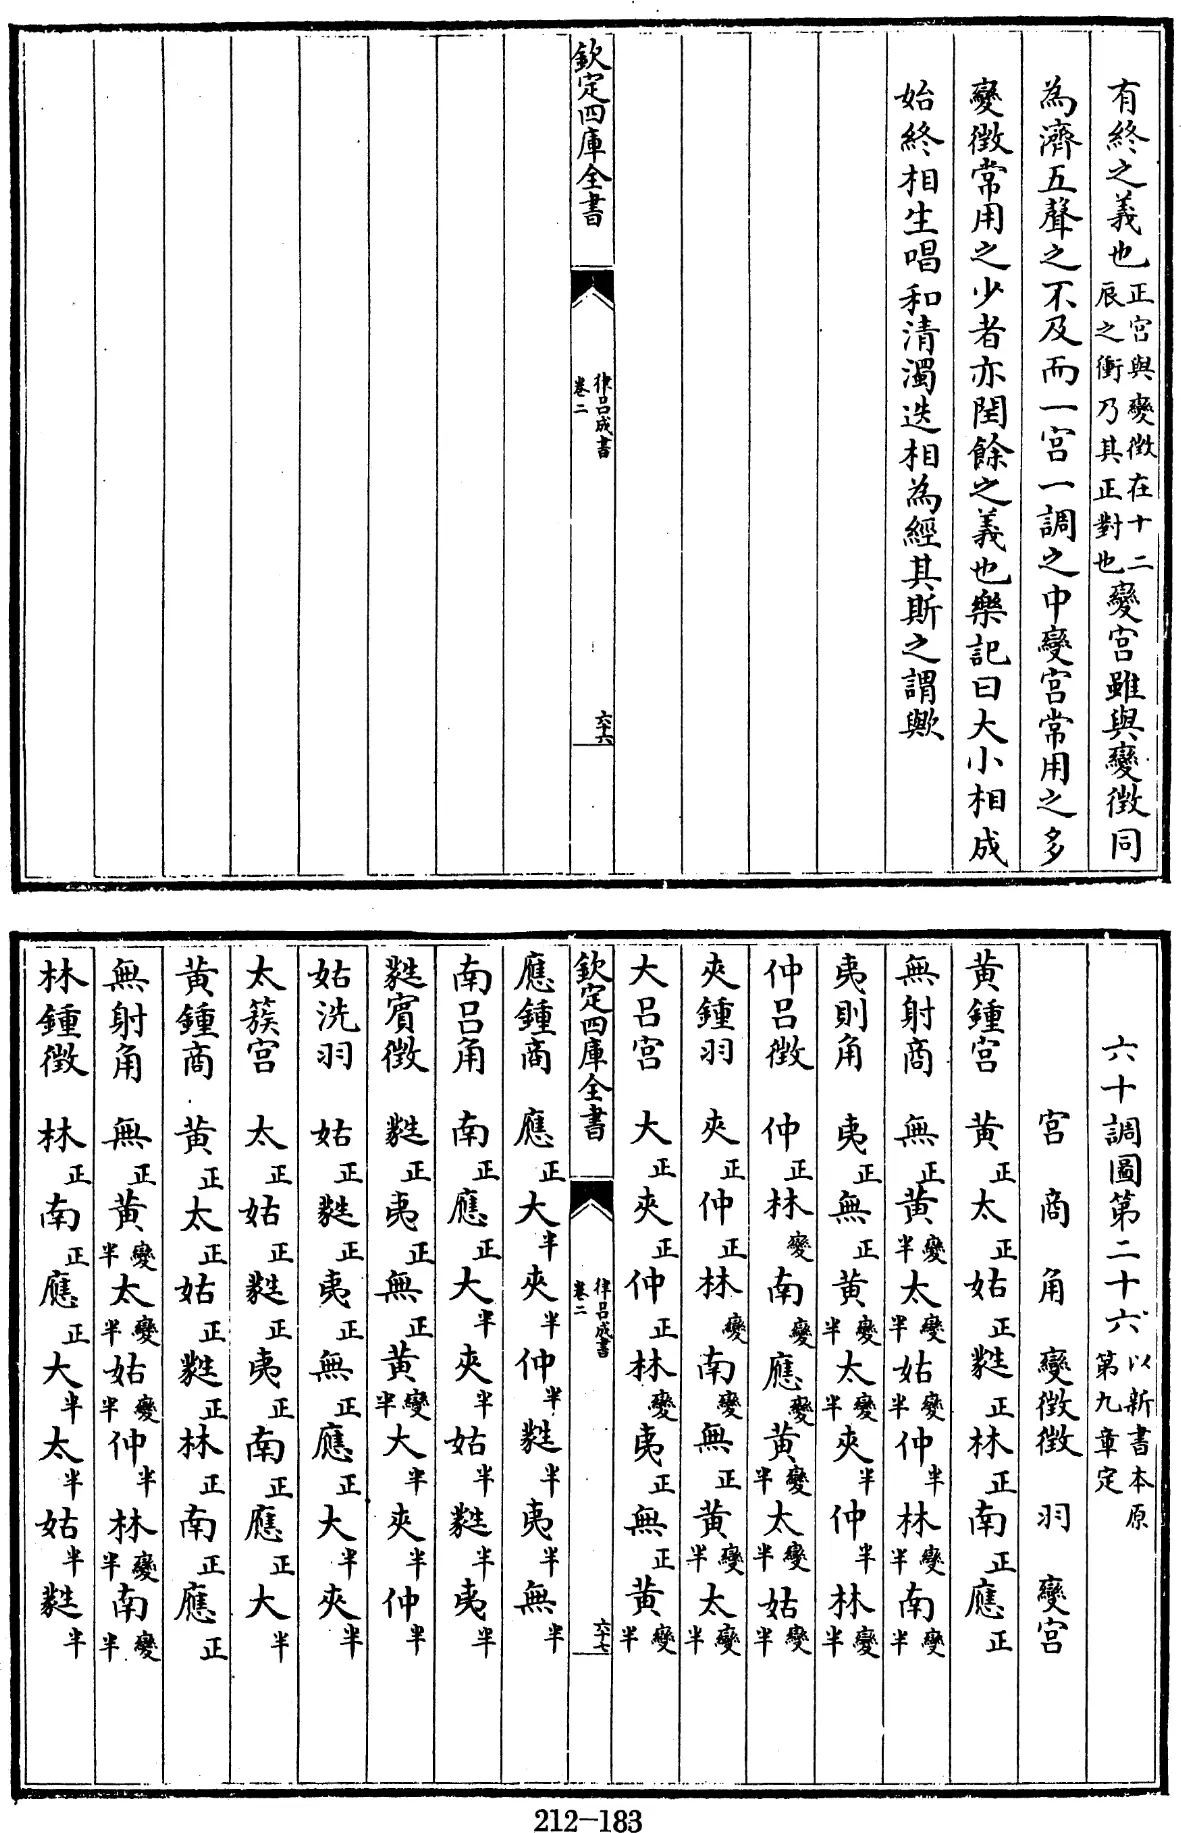 有終之義也正宫與變徵在十二辰之衝乃其正對也變宫雖與變徵同
為濟五聲之不及而一宫一調之中變宫常用之多
變徵常用之少者亦閏餘之義也樂記曰大小相成
始終相生唱和清濁迭相為經其斯之謂歟
欽定四庫全書
律吕成書
卷二
六十六
六十調圖第二十六以新書本原第九章定
宫 商 角 變徵 徵 羽 變宫
黄鍾宫 黄正 太正 姑正 蕤正 林正 南正 應正
無射商 無正 黄變半 太變半 姑變半 仲半 林變半 南變半
夷則角 夷正 無正 黄變半 太變半 夾半 仲半 林變半
仲吕徵 仲正 林變 南變 應變 黄變半 太變半 姑變半
夾鍾羽 夾正 仲正 林變 南變 無正 黄變半 太變半
大吕宫 大正 夾正 仲正 林變 夷正 無正 黄變半
欽定四庫全書
律吕成書
卷二
六十七
應鍾商 應正 大半 夾半 仲半 蕤半 夷半 無半
南吕角 南正 應正 大半 夾半 姑半 蕤半 夷半
蕤賓徵 蕤正 夷正 無正 黄變半 大半 夾半 仲半
姑洗羽 姑正 蕤正 夷正 無正 應正 大半 夾半
太簇宫 太正 姑正 蕤正 夷正 南正 應正 大半
黄鍾商 黄正 太正 姑正 蕤正 林正 南正 應正
無射角 無正 黄變半 太變半 姑變半 仲半 林變半 南變半
林鍾徵 林正 南正 應正 大半 太半 姑半 蕤半
212-183